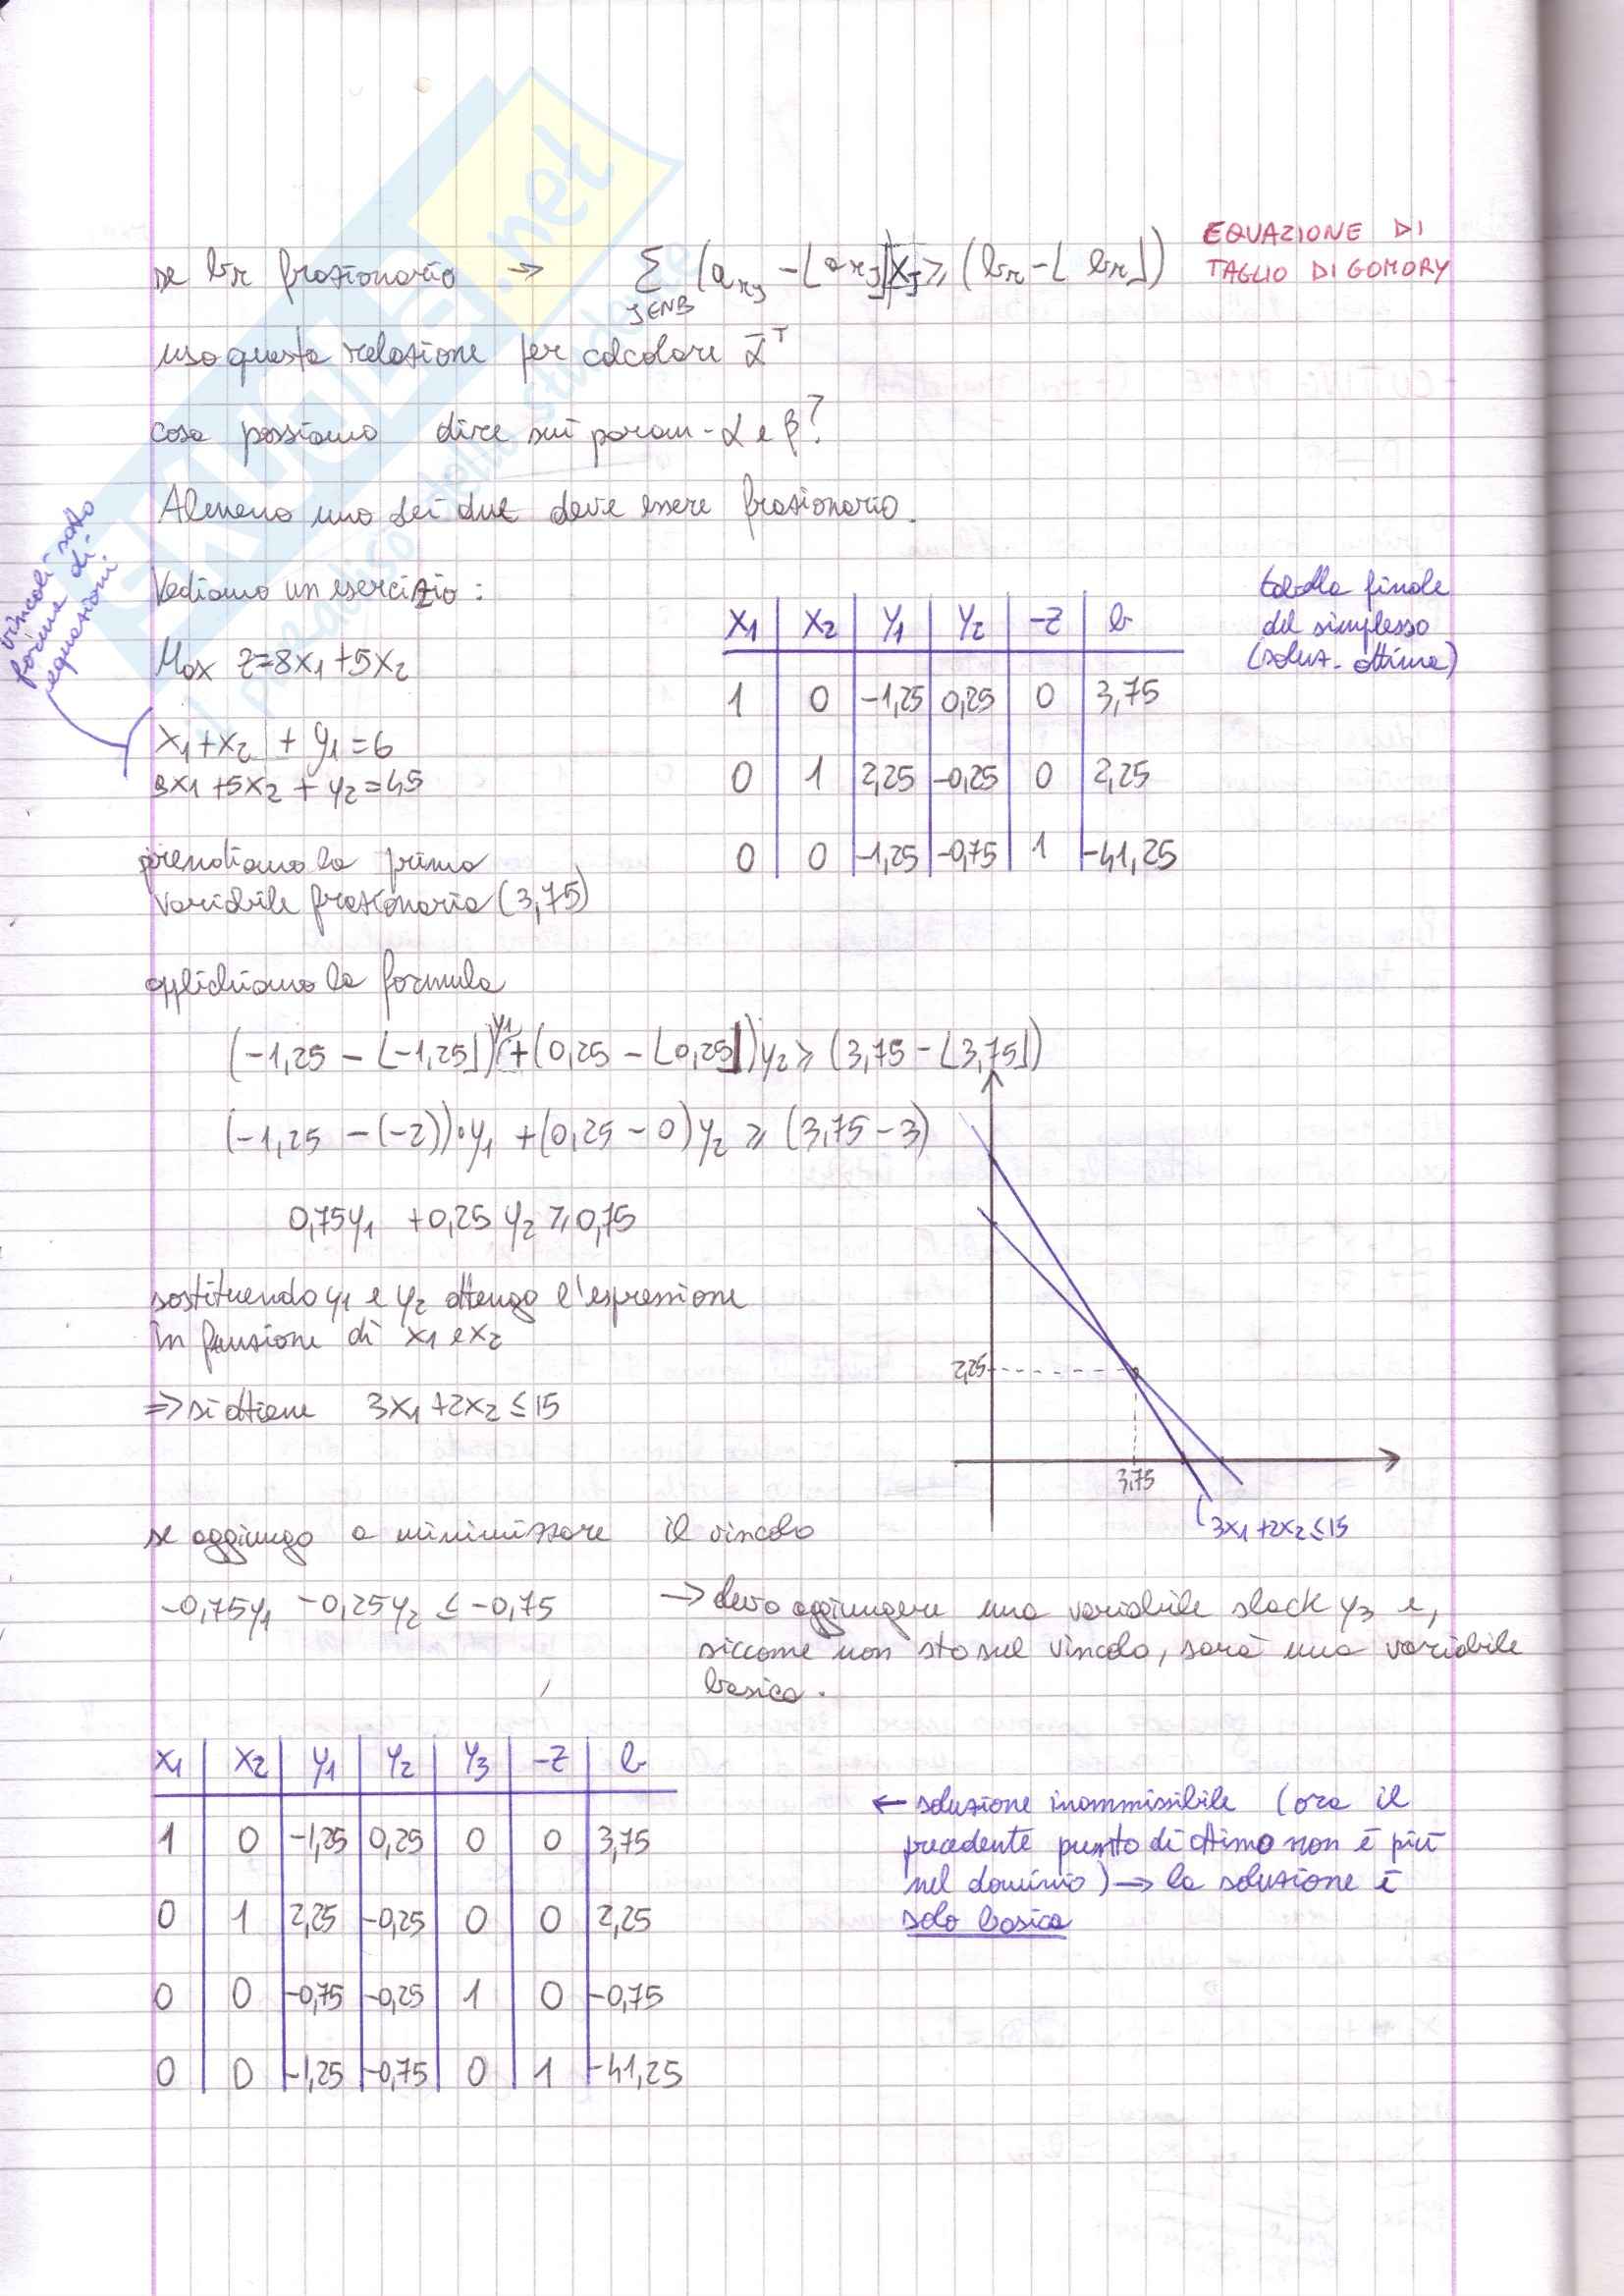 se br frazionario → Σ j∈NB (arj - ⌊arj⌋)xj ≥ (br - ⌊br⌋) EQUAZIONE DI
TAGLIO DI GOMORY
uso questa relazione per calcolare ᾱᵀ
cosa possiamo dire sui param. α e β?
Almeno uno dei due deve essere frazionario.
vincoli sotto
forma di
equazioni
Vediamo un esercizio:
Max z=8x1+5x2
x1+x2 + y1=6
9x1+5x2+y2=45
x1 x2 y1 y2 -z b
1 0 -1,25 0,25 0 3,75
0 1 2,25 -0,25 0 2,25
0 0 -1,25 -0,75 1 -41,25
tabella finale
del simplesso
(soluz. ottima)
prendiamo la prima
variabile frazionaria (3,75)
applichiamo la formula
(-1,25 - ⌊-1,25⌋)y1 + (0,25 - ⌊0,25⌋)y2 ≥ (3,75 - ⌊3,75⌋)
(-1,25 - (-2))·y1 + (0,25 - 0)y2 ≥ (3,75 - 3)
0,75y1 + 0,25 y2 ≥ 0,75
sostituendo y1 e y2 ottengo l'espressione
in funzione di x1 e x2
⇒ si ottiene 3x1+2x2 ≤ 15
2,25
3,75
3x1+2x2 ≤ 15
se aggiungo a minimizzare il vincolo
-0,75y1 - 0,25y2 ≤ -0,75 → devo aggiungere una variabile slack y3 e,
siccome non sto sul vincolo, sarà una variabile
basica.
x1 x2 y1 y2 y3 -z b
1 0 -1,25 0,25 0 0 3,75
0 1 2,25 -0,25 0 0 2,25
0 0 -0,75 -0,25 1 0 -0,75
0 0 -1,25 -0,75 0 1 -41,25
← soluzione inammissibile (ora il
precedente punto di ottimo non è più
nel dominio) → la soluzione è
solo basica